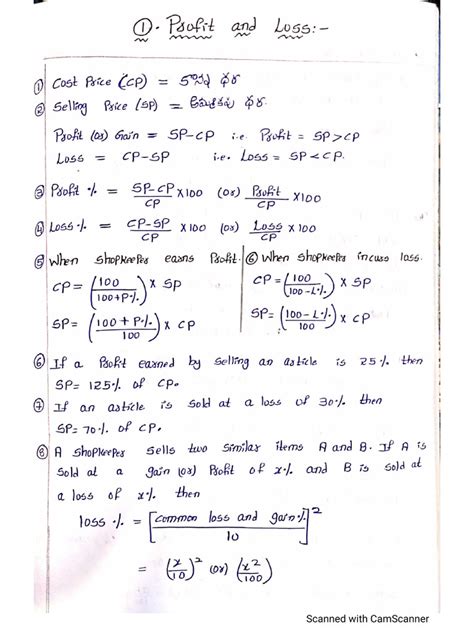 ①. Profit and Loss:-
① Cost Price (CP) = కొన్న ధర
② Selling Price (SP) = అమ్మిన ధర.
Profit (or) Gain = SP-CP i.e Profit = SP>CP
Loss = CP-SP i.e. Loss = SP<CP.
③ Profit % = SP-CP/CP X100 (or) Profit/CP X100
④ Loss % = CP-SP/CP X100 (or) Loss/CP X100
⑤ When Shopkeeper earns Profit. ⑥ When Shopkeeper incurs loss.
CP = (100/100+P%) X SP CP = (100/100-L%) X SP
SP = (100+P%/100) X CP SP = (100-L%/100) X CP
⑥ If a Profit earned by selling an article is 25% then
SP = 125% of CP.
⑦ If an article is Sold at a loss of 30% then
SP = 70% of CP.
⑧ A Shopkeeper Sells two Similar items A and B. If A is
Sold at a gain (or) Profit of x% and B is Sold at
a loss of x% then
loss % = [common loss and gain%/10]²
= (x/10)² (or) (x²/100)
Scanned with CamScanner